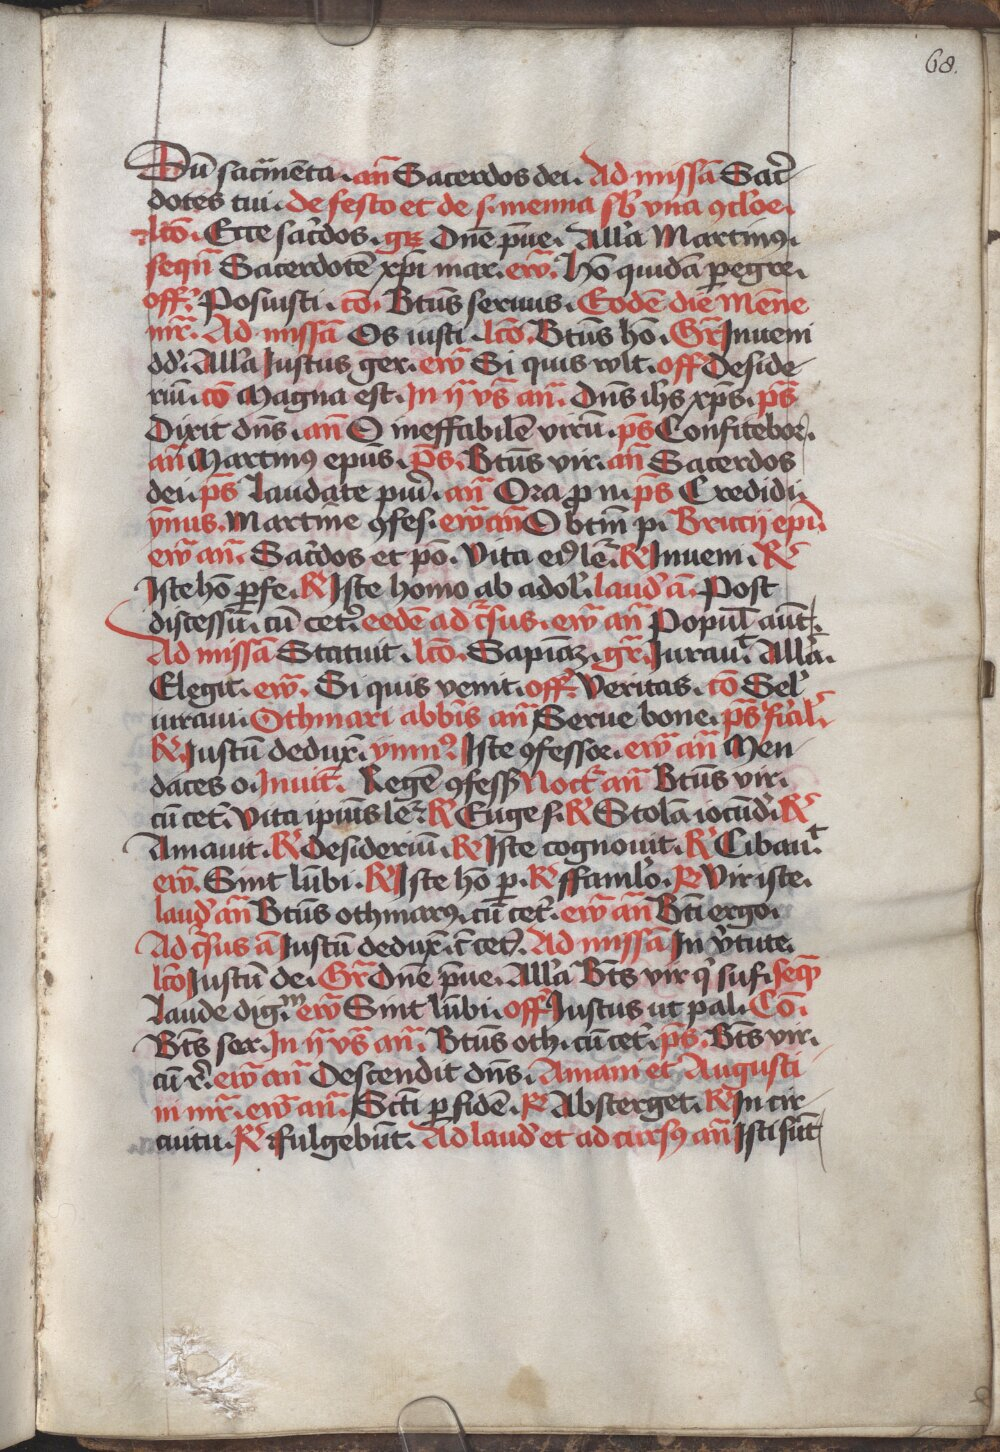 68.
Dū sacͣmēta. an̄ Sacerdos dei. Ad missā Sac̄
dotes tui. de festo et de s. menna sb̄ vna ꝯcl̄oe.
lcō. Ecce sac̄dos. gr̄ Dn̄e p̄ue. All'a Martinꝯ.
seqn̄ Sacerdotē xp̄i mar. ew̄. Hō quidā ꝑegre.
off. Posuisti. cō. Bt̄us seruus. Eodē die Mēne
mr̄. Ad missā Os iusti. lcō. Bt̄us hō. Gr̄ Inueni
dd'. All'a Iustus ger. ew̄ Si quis vult. off Deside
riū. cō Magna est. In ij vs̄ an̄. Dn̄s ihs xp̄s. ps̄
Dixit dn̄s. an̄ O ineffabilē virū. ps̄ Confitebor.
an̄ Martinꝯ epūs. Ps̄. Bt̄us vir. an̄ Sacerdos
dei. ps̄ Laudate pu'i. an̄ Ora ꝓ n. ps̄ Credidi.
ymus. Martine ꝯfes. ew̄ an̄ O btm̄ p. Brictij epī.
ew̄ an̄. Sac̄dos et po. Vita eiꝯ le. R' Inueni. R'
Iste hō ꝑfe. R' Iste homo ab adol'. laud' ā. Post
discessū. cū cet'. eedē ad c̄sus. ew̄ an̄ Popul' aūt.
Ad missā Statuit. lcō. Sapiāz. gr̄. Iurauᵗ. All'a.
Elegit. ew̄. Si quis venit. off. Veritas. cō Sel'
iuraui. Othmari abbis an̄ Serue bone. ps̄ fi'al'
R'. Iustū dedux. ymnꝯ Iste ꝯfessor. ew̄ an̄ Men
daces o. Inuit. Regē ꝯfess' Noct' an̄ Bt̄us vir.
cū cet'. Vita ipiūs le. R' Euge s. R' Stolā iocūd'. R'
Amauit. R' Desideriū. R' Iste cognouit. R' Cibauᵗ.
ew̄. Sint lūbi. R' Iste hō p. R' ffamul'o. R' Vir iste.
laud' an̄ Bt̄us othmarꝯ. cū cet'. ew̄ an̄ Bt̄i ergo.
Ad c̄sus ā Iustū dedux. c̄ cet'. Ad missā In v̄tute.
lcō Iustū de. Gr̄ Dn̄e p̄ue. All'a Bt̄s vir q' suf. seqn̄
Laude digᵐ. ew̄ Sint lūbi. off Iustus ut pal. Cō.
Bt̄s ser. In ij vs̄ an̄. Bt̄us oth. cū cet'. ps̄. Bt̄s vir.
cū r'. ew̄ an̄ Descendit dn̄s. Amani et Augusti
ni mr̄. ew̄ an̄. Scti ꝑ fidē. R' Absterget. R' In cir
cuitu. R' fulgebūt. Ad laud' et ad cursꝯ an̄ Isti sūt